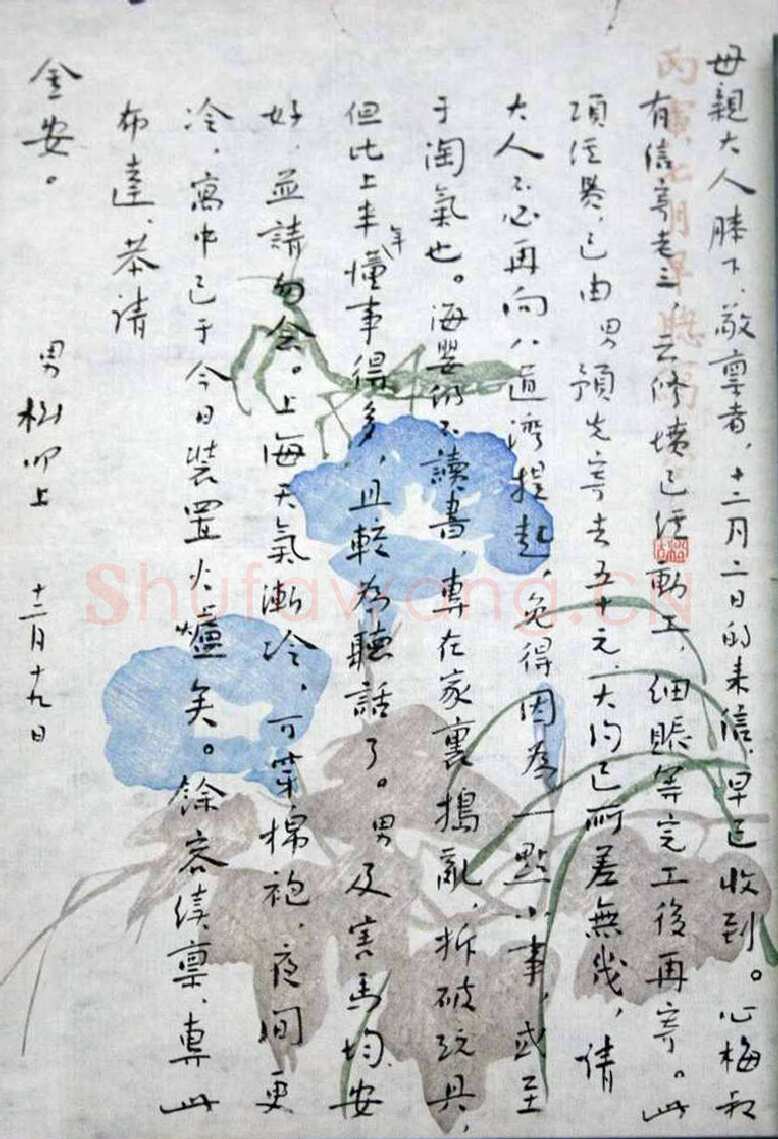 母親大人膝下,敬稟者,十二月二日的来信,早已收到。心梅叔
有信寄老三,云修墳已經動工,細賬等完工後再寄。此
項經费,已由男預先寄去五十元,大约已所差無幾,請
大人不必再向八道灣提起,免得因為一點小事,或至
于淘氣也。海嬰仍不讀書,專在家裏搗亂,拆破玩具,
但比上半年懂事得多,且較為聽話了。男及害馬均安
好,並請勿念。上海天氣漸冷,可穿棉袍,夜間更
冷,寓中已于今日裝置火爐矣。餘容续稟,專此
布達,恭请
金安。
男樹叩上 十二月十九日
丙寅七月早
Shufawang.CN